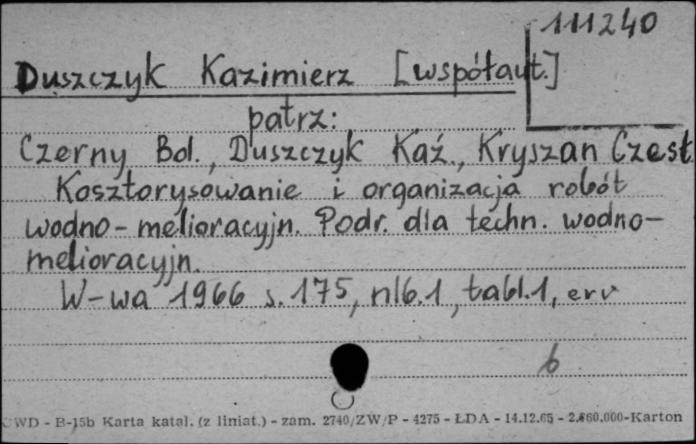 111240
Duszczyk Kazimierz [współaut.]
patrz:
Czerny Bol., Duszczyk Kaź., Kryszan Czest
Kosztorysowanie i organizacja robót
wodno-melioracyjn. Podr. dla techn. wodno-
melioracyjn.
W-wa 1966 s. 175, nlb.1, tabl.1, err
b
CWD - B-15b Karta katal. (z liniat.) - zam. 2740/ZW/P - 4275 - ŁDA - 14.12.65 - 2.860.000-Karton